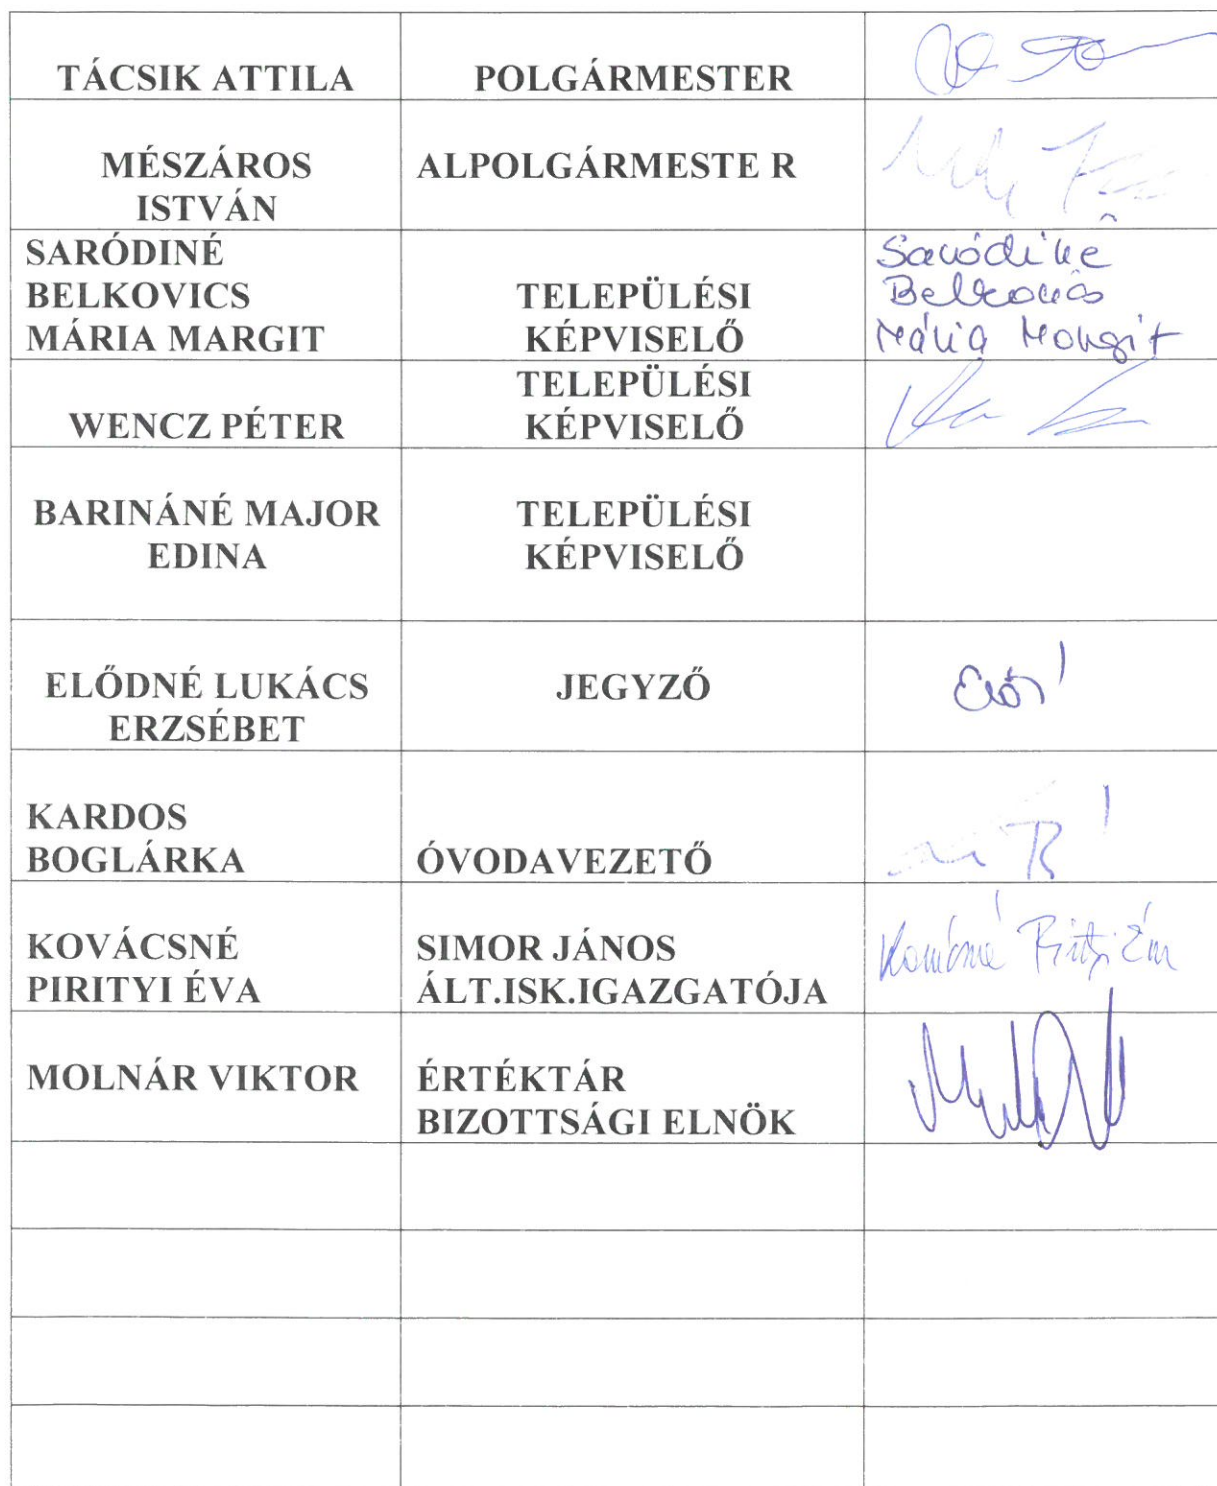 TÁCSIK ATTILA POLGÁRMESTER
MÉSZÁROS
ISTVÁN
ALPOLGÁRMESTE R
SARÓDINÉ
BELKOVICS
MÁRIA MARGIT
TELEPÜLÉSI
KÉPVISELŐ
Saródiné
Belkovics
Mária Margit
WENCZ PÉTER
TELEPÜLÉSI
KÉPVISELŐ
BARINÁNÉ MAJOR
EDINA
TELEPÜLÉSI
KÉPVISELŐ
ELŐDNÉ LUKÁCS
ERZSÉBET
JEGYZŐ
KARDOS
BOGLÁRKA
ÓVODAVEZETŐ
KOVÁCSNÉ
PIRITYI ÉVA
SIMOR JÁNOS
ÁLT.ISK.IGAZGATÓJA
Kovácsné Pirityi Éva
MOLNÁR VIKTOR
ÉRTÉKTÁR
BIZOTTSÁGI ELNÖK